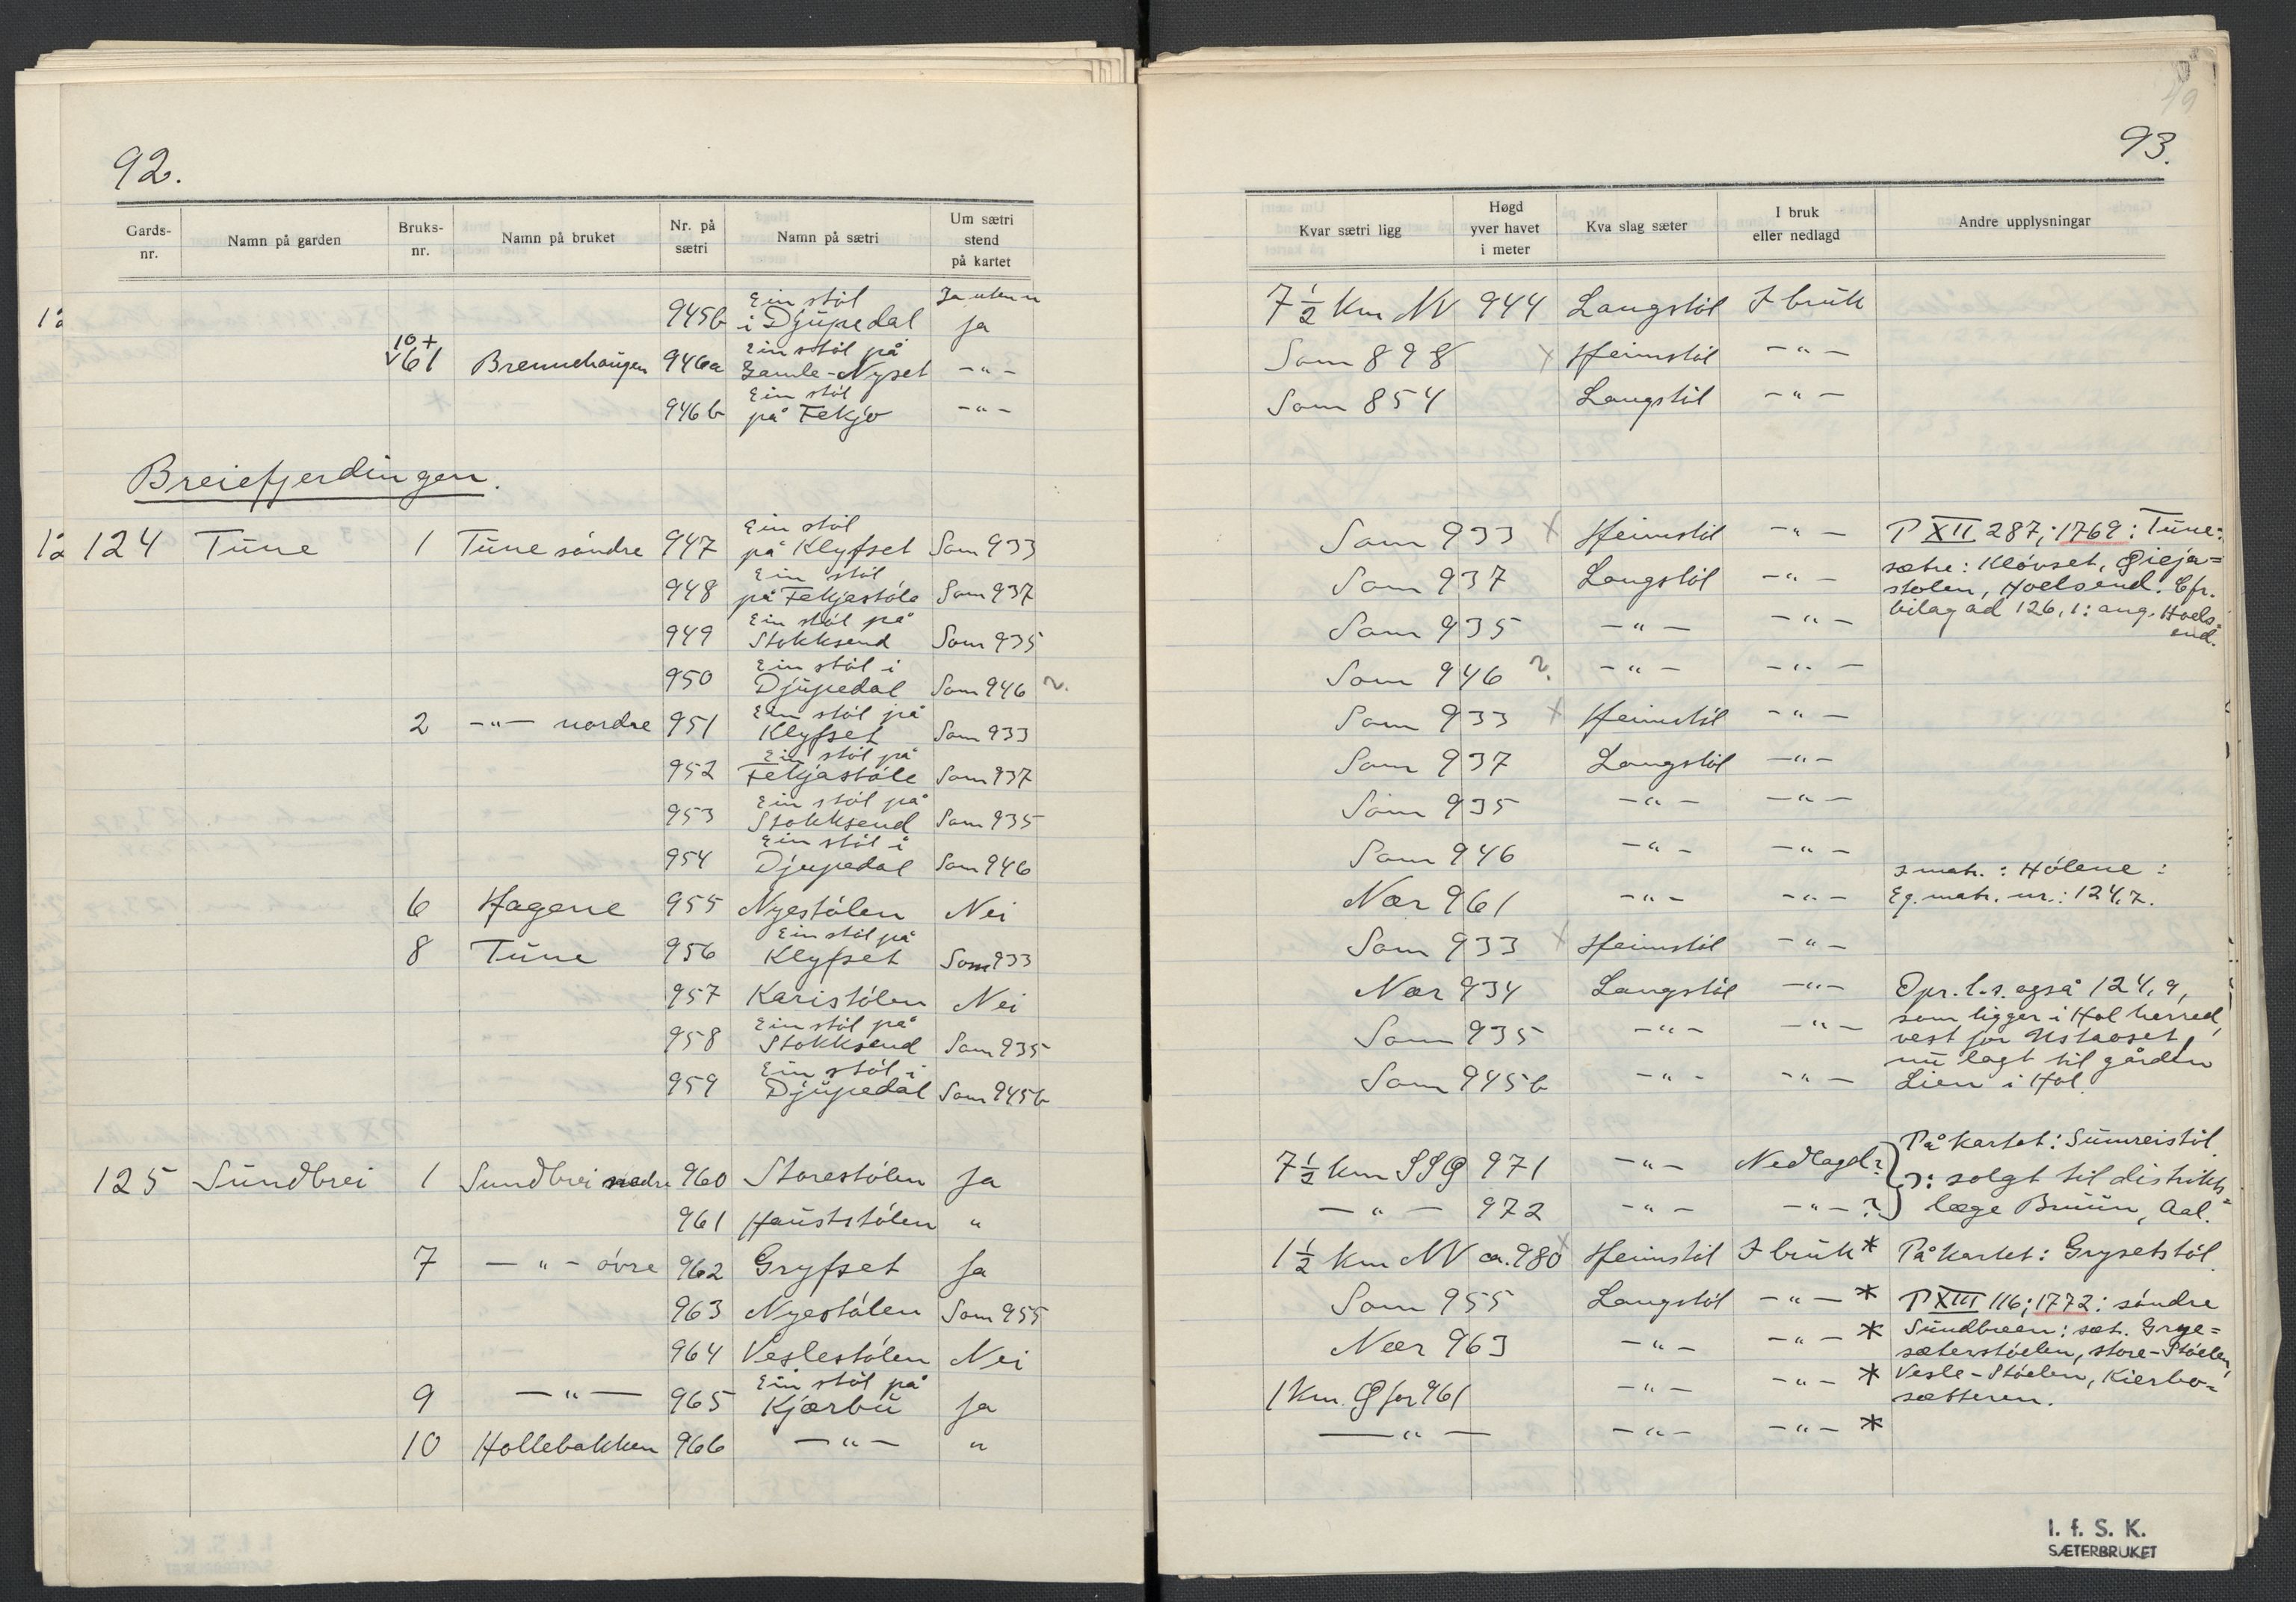 92.
Gards-nr. Namn på garden Bruks-nr. Namn på bruket Nr. på sætri Namn på sætri Um sætri stend på kartet
945b Ein stöl i Djupedal Ja
10+
61 Brennehaugen 946a Ein stöl på Gamle-Nyset -"-
946b Ein stöl på Fekjo -"-
Breiefjerdingen.
124 Tune 1 Tune söndre 947 Ein stöl på Klyfset Som 933
948 Ein stöl på Fekjastöle Som 937
949 Ein stöl på Stokksend Som 935
950 Ein stöl i Djupedal Som 946 ?
2 -"- nordre 951 Ein stöl på Klyfset Som 933
952 Ein stöl på Fekjastöle Som 937
953 Ein stöl på Stokksend Som 935
954 Ein stöl i Djupedal Som 946
6 Hagene 955 Nyestölen Nei
8 Tune 956 Ein stöl på Klyfset Som 933
957 Karistölen Nei
958 Ein stöl på Stokksend Som 935
959 Ein stöl i Djupedal Som 945b
125 Sundbrei 1 Sundbrei nedre 960 Storestölen Ja
961 Hauststölen "
7 -"- övre 962 Gryfset Ja
963 Nyestölen Som 955
964 Veslestölen Nei
9 -"- 965 Ein stöl på Kjærbu Ja
10 Hollebakken 966 -"- "
93.
Kvar sætri ligg Høgd yver havet i meter Kva slag sæter I bruk eller nedlagd Andre upplysningar
7 1/2 km NV 944 Langstöl I bruk
Som 898 x Heimstöl -"-
Som 854 Langstöl -"-
Som 933 x Heimstöl -"- P XII 287; 1769: Tune:
Som 937 Langstöl -"- sætre: Klövset, Øieja=
stolen, Hoelsend. Cfr.
Som 935 -"- -"- bilag ad 126,1: ang. Hoels=
end.
Som 946 ? -"- -"-
Som 933 x Heimstöl -"-
Som 937 Langstöl -"-
Som 935 -"- -"-
Som 946 -"- -"-
I matr.: Hölene:
Nær 961 -"- -"- Eg. matr. nr.: 124,7.
Som 933 x Heimstöl -"-
Nær 934 Langstöl -"- Opr. l. s. også 124,9,
Som 935 -"- -"- som ligger i Hol herred,
vest for Ustaoset,
nu lagt til gården
Som 945b -"- -"- Lien i Hol.
På kartet: Sunreistöl.
7 1/2 km SSØ 971 -"- Nedlagd? ɔ: solgt til distrikts=
-"- 972 -"- -"-? læge Bruun, Aal.
1 1/2 km NV ca. 980 x Heimstöl I bruk* På kartet: Grysetstöl.
Som 955 Langstöl -"-* P XIII 116; 1772: söndre
Nær 963 -"- -"-* Sundbreen: sæt. Grye=
sæterstöelen, store-Stöelen,
1 km. Ø for 961 -"- -"-* Vesle-Stöelen, Kierbo=
sætteren.
-"- -"- -"-*
I. f. S. K.
SÆTERBRUKET